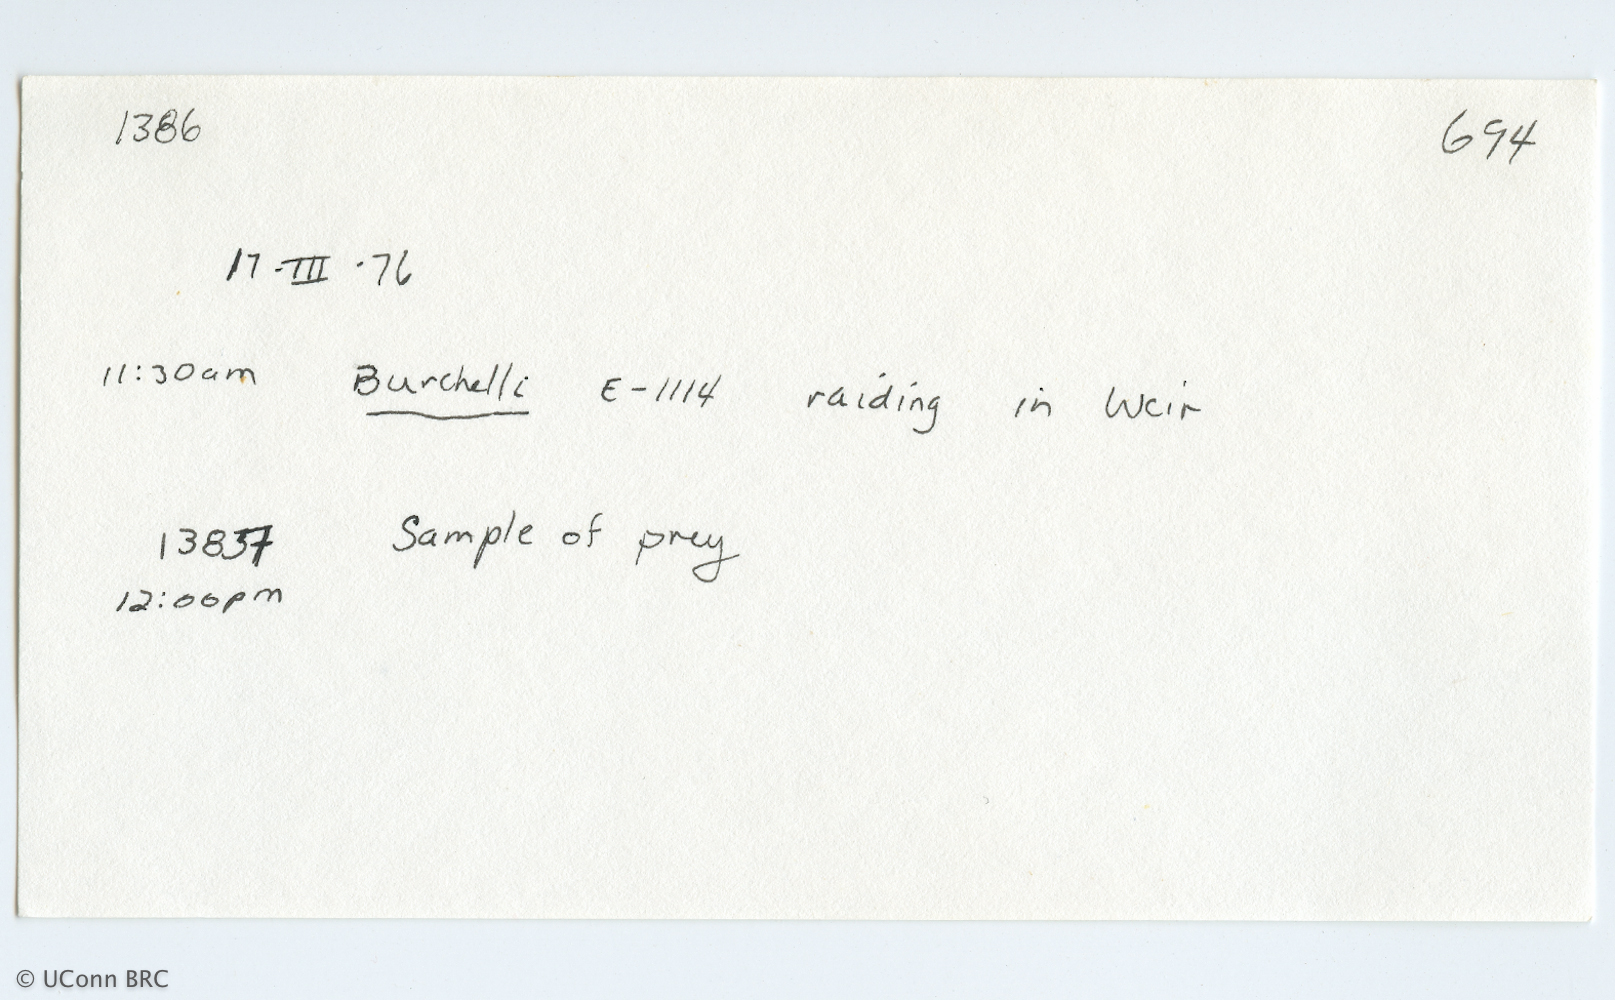 1386 694
17-III-76
11:30am Burchelli E-1114 raiding in Weir
13857 Sample of prey
12:00pm
© UConn BRC